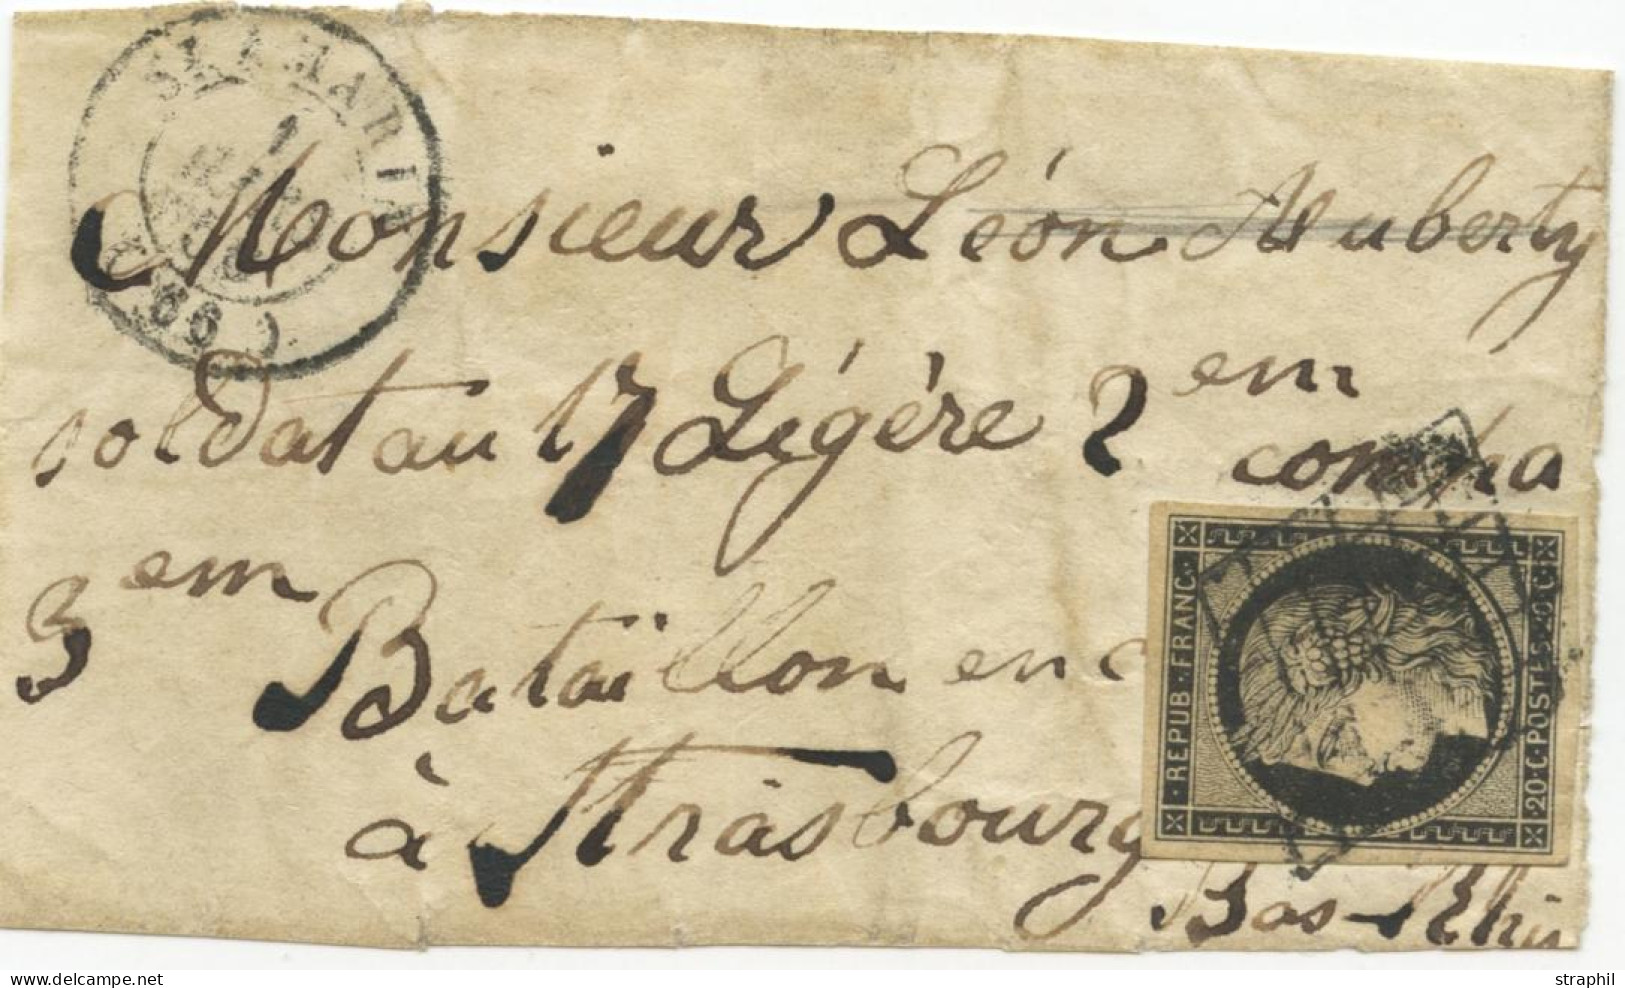 ST AMARIN
(66)
Monsieur Léon Auberty
soldat au 17 Légére 2em compa
3em Bataillon en
à Strasbourg
Bas-Rhin
REPUB·FRANC·
20·C·POSTES·20·C
straphil